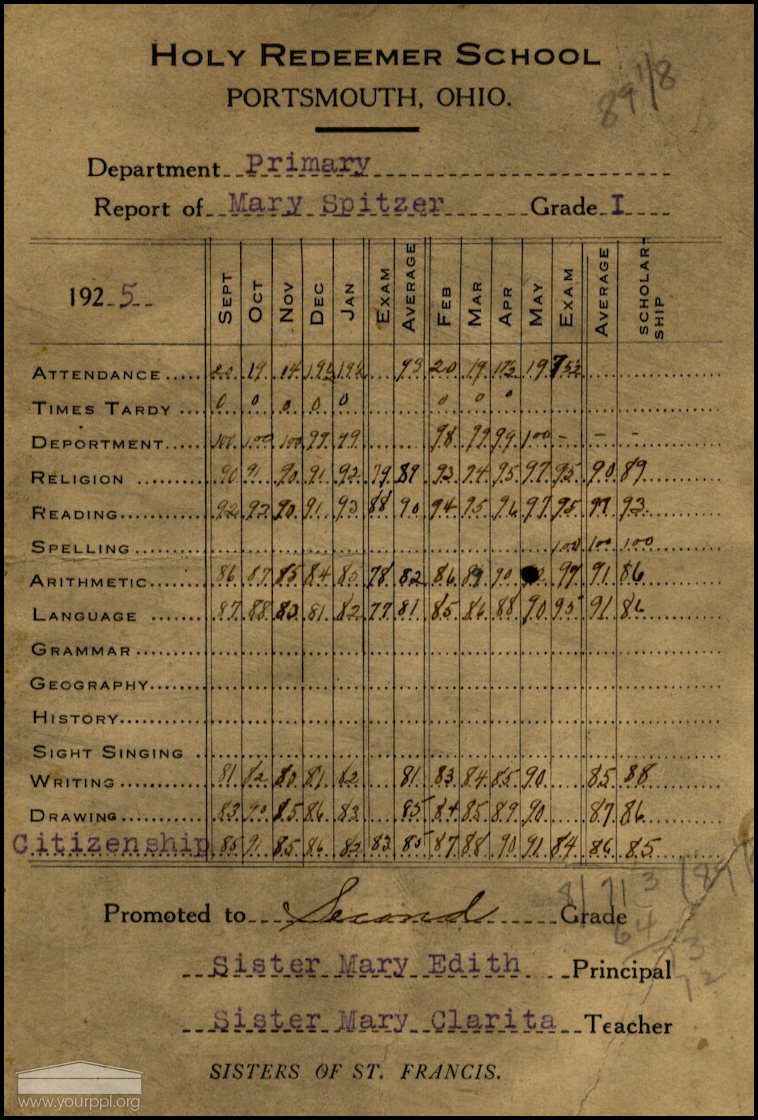 HOLY REDEEMER SCHOOL
PORTSMOUTH, OHIO.
89 1/8
Department Primary
Report of Mary Spitzer Grade I
192 5 SEPT OCT NOV DEC JAN EXAM AVERAGE FEB MAR APR MAY EXAM AVERAGE SCHOLAR-SHIP
ATTENDANCE 20 19 14 19½ 19½ 93 20 19 17½ 19
TIMES TARDY 0 0 0 0 0 0 0 0
DEPORTMENT 100 100 100 99 99 98 99 99 100 - - -
RELIGION 90 91 90 91 92 79 89 93 94 95 97 95 90 89
READING 92 93 90 91 93 88 90 94 95 96 97 98 97 93
SPELLING 100 100 100
ARITHMETIC 86 87 85 84 85 78 82 86 89 90 99 91 86
LANGUAGE 87 88 83 81 82 77 81 85 86 88 90 95 91 86
GRAMMAR
GEOGRAPHY
HISTORY
SIGHT SINGING
WRITING 81 82 80 81 82 81 83 84 85 90 85 88
DRAWING 83 90 85 86 83 85 84 85 89 90 87 86
Citizenship 85 91 85 86 82 83 85 87 88 90 91 84 86 85
Promoted to Second Grade
8/713 (89 1/
64
73
72
Sister Mary Edith Principal
Sister Mary Clarita Teacher
SISTERS OF ST. FRANCIS.
www.yourppl.org